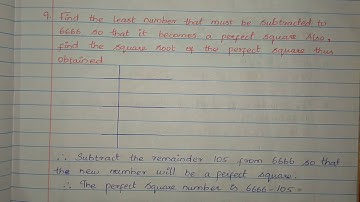 9. Find the least number that must be subtracted to
6666 so that it becomes a perfect square. Also,
find the square root of the perfect square thus
obtained
∴ Subtract the remainder 105 from 6666 so that
the new number will be a perfect square.
∴ The perfect square number is 6666-105=